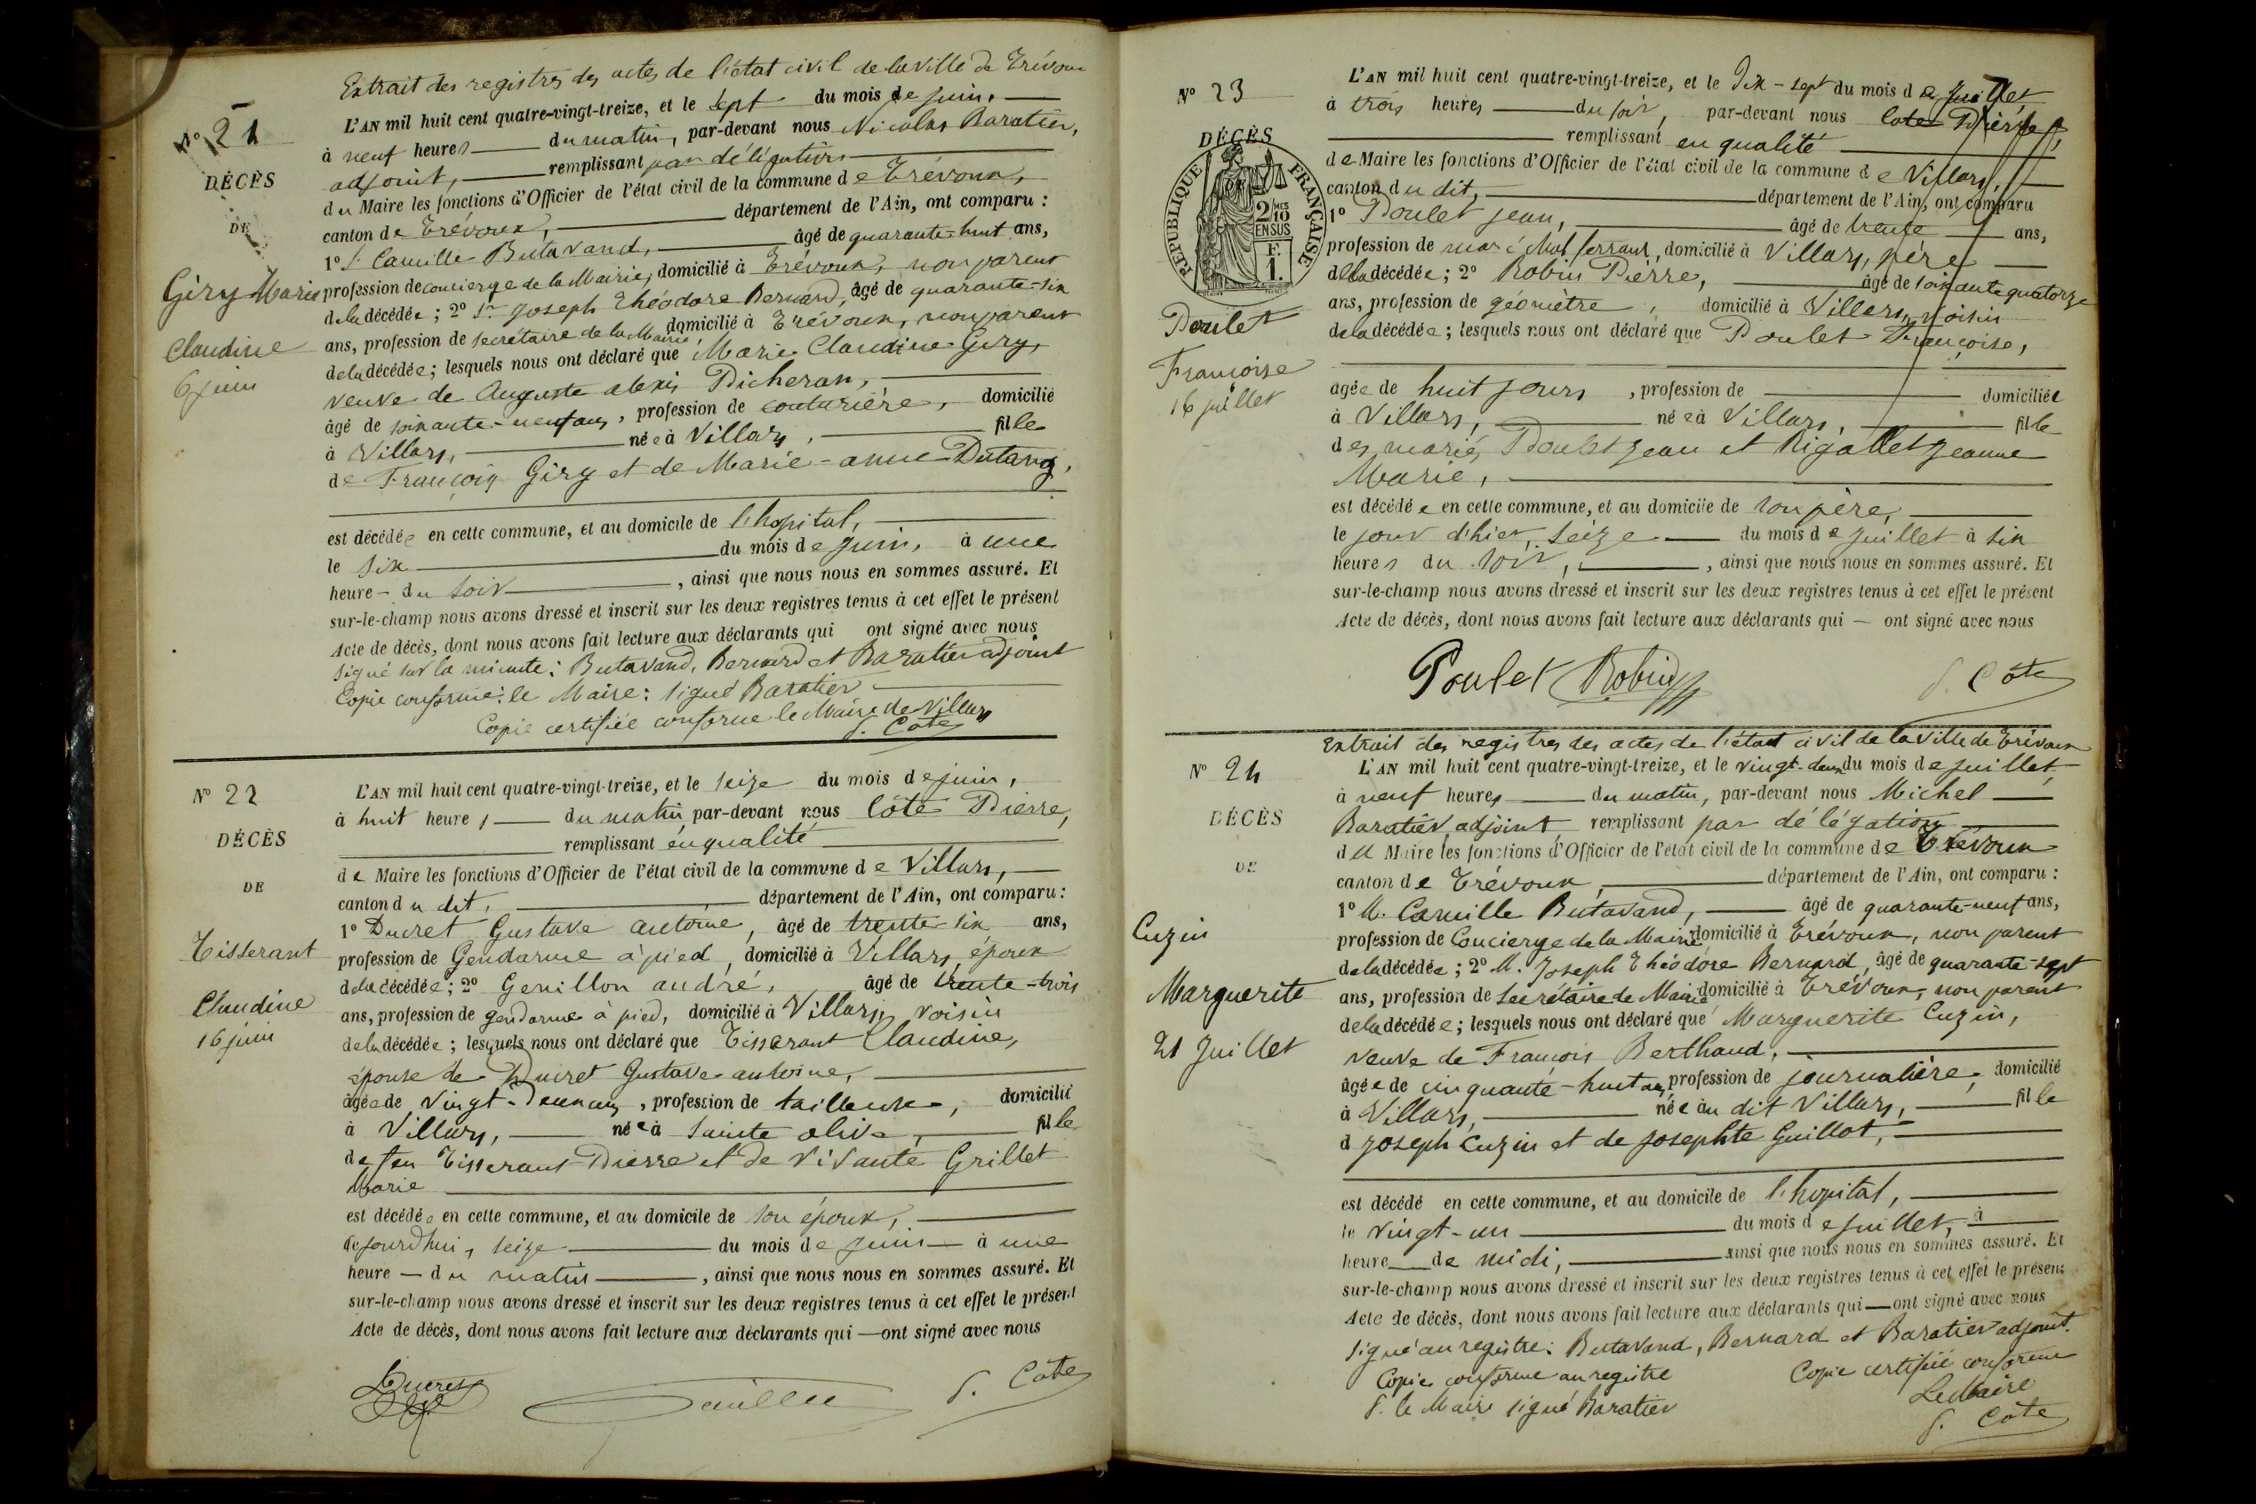 Extrait des registres des actes de l'état civil de la ville de Trévoux
N° 21
L'AN mil huit cent quatre-vingt-treize, et le sept du mois de juin,
à neuf heures du matin, par-devant nous Nicolas Baratier,
adjoint, remplissant par délégation
DÉCÈS
du Maire les fonctions d'Officier de l'état civil de la commune de Trévoux,
DE
canton de Trévoux, département de l'Ain, ont comparu :
1° Sr Camille Butavand, âgé de quarante-huit ans,
Giry Marie
profession de concierge de la Mairie, domicilié à Trévoux, non parent
de la décédée ; 2° Sr Joseph Théodore Bernard, âgé de quarante-six
Claudine
ans, profession de secrétaire de la Mairie, domicilié à Trévoux, non parent
6 juin
de la décédée ; lesquels nous ont déclaré que Marie Claudine Giry,
veuve de Auguste alexis Picheran,
âgé de soixante-neuf ans, profession de couturière, domicilié
à Villars, née à Villars, fille
de François Giry et de Marie-anne Dutang,
est décédée en cette commune, et au domicile de l'hopital,
le six du mois de juin, à une
heure du soir, ainsi que nous nous en sommes assuré. Et
sur-le-champ nous avons dressé et inscrit sur les deux registres tenus à cet effet le présent
Acte de décès, dont nous avons fait lecture aux déclarants qui ont signé avec nous
Signé sur la minute : Butavand, Bernard et Baratier adjoint
Copie conforme : le Maire : signé Baratier
Copie certifiée conforme le Maire de Villars
P. Côte
N° 22
L'AN mil huit cent quatre-vingt-treize, et le seize du mois de juin,
à huit heures du matin par-devant nous Côte Pierre,
DÉCÈS
remplissant en qualité
DE
de Maire les fonctions d'Officier de l'état civil de la commune de Villars,
canton du dit, département de l'Ain, ont comparu :
1° Ducret Gustave antoine, âgé de trente-six ans,
Tisserant
profession de Gendarme à pied, domicilié à Villars, époux
de la décédée ; 2° Genillon andré, âgé de trente-trois
Claudine
ans, profession de gendarme à pied, domicilié à Villars, voisin
16 juin
de la décédée ; lesquels nous ont déclaré que Tisserant Claudine,
épouse de Ducret Gustave antoine,
âgée de vingt-deux ans, profession de tailleuse, domicilié
à Villars, née à Sainte olive, fille
de feu Tisserant Pierre et de vivante Grillet
Marie
est décédée en cette commune, et au domicile de son époux,
cejourd'hui, seize du mois de juin à une
heure du matin, ainsi que nous nous en sommes assuré. Et
sur-le-champ nous avons dressé et inscrit sur les deux registres tenus à cet effet le présent
Acte de décès, dont nous avons fait lecture aux déclarants qui ont signé avec nous
Ducret
P. Côte
N° 23
L'AN mil huit cent quatre-vingt-treize, et le Dix-sept du mois de Juillet
à trois heures du soir, par-devant nous Cote Pierre,
DÉCÈS
remplissant en qualité
RÉPUBLIQUE FRANÇAISE
2/10 MES
EN SUS
F.
1.
de Maire les fonctions d'Officier de l'état civil de la commune de Villars,
canton du dit, département de l'Ain, ont comparu
1° Poulet jean, âgé de trente ans,
profession de maréchal ferrant, domicilié à Villars, père
de la décédée ; 2° Robin Pierre, âgé de soixante quatorze
ans, profession de géomètre, domicilié à Villars, voisin
Poulet
de la décédée ; lesquels nous ont déclaré que Poulet Françoise,
Françoise
16 juillet
agée de huit jours, profession de domiciliée
à Villars, née à Villars, fille
des mariés Poulet Jean et Rigollet Jeanne
Marie,
est décédée en cette commune, et au domicile de son père,
le jour d'hier, seize du mois de juillet à six
heures du soir, ainsi que nous nous en sommes assuré. Et
sur-le-champ nous avons dressé et inscrit sur les deux registres tenus à cet effet le présent
Acte de décès, dont nous avons fait lecture aux déclarants qui ont signé avec nous
Poulet Robin P. Côte
Extrait des registres des actes de l'état civil de la ville de Trévoux
N° 24
L'AN mil huit cent quatre-vingt-treize, et le vingt-deux du mois de juillet,
à neuf heures du matin, par-devant nous Michel
DÉCÈS
Baratier, adjoint, remplissant par délégation
du Maire les fonctions d'Officier de l'état civil de la commune de Trévoux
DE
canton de Trévoux, département de l'Ain, ont comparu :
1° M. Camille Butavand, âgé de quarante-neuf ans,
Cuzin
profession de Concierge de la Mairie, domicilié à Trévoux, non parent
de la décédée ; 2° M. Joseph Théodore Bernard, âgé de quarante-sept
Marguerite
ans, profession de Secrétaire de Mairie, domicilié à Trévoux, non parent
de la décédée ; lesquels nous ont déclaré que Marguerite Cuzin,
21 Juillet
veuve de François Berthaud,
âgée de cinquante-huit ans, profession de journalière, domicilié
à Villars, née au dit Villars, fille
d Joseph Cuzin et de Josephte Guillot,
est décédé en cette commune, et au domicile de l'hopital,
le vingt-un du mois de juillet, à
heure de midi, ainsi que nous nous en sommes assuré. Et
sur-le-champ nous avons dressé et inscrit sur les deux registres tenus à cet effet le présent
Acte de décès, dont nous avons fait lecture aux déclarants qui ont signé avec nous
Signé au registre : Butavand, Bernard et Baratier adjoint.
Copie conforme au registre
P. le Maire signé Baratier
Copie certifiée conforme
Le Maire
P. Côte